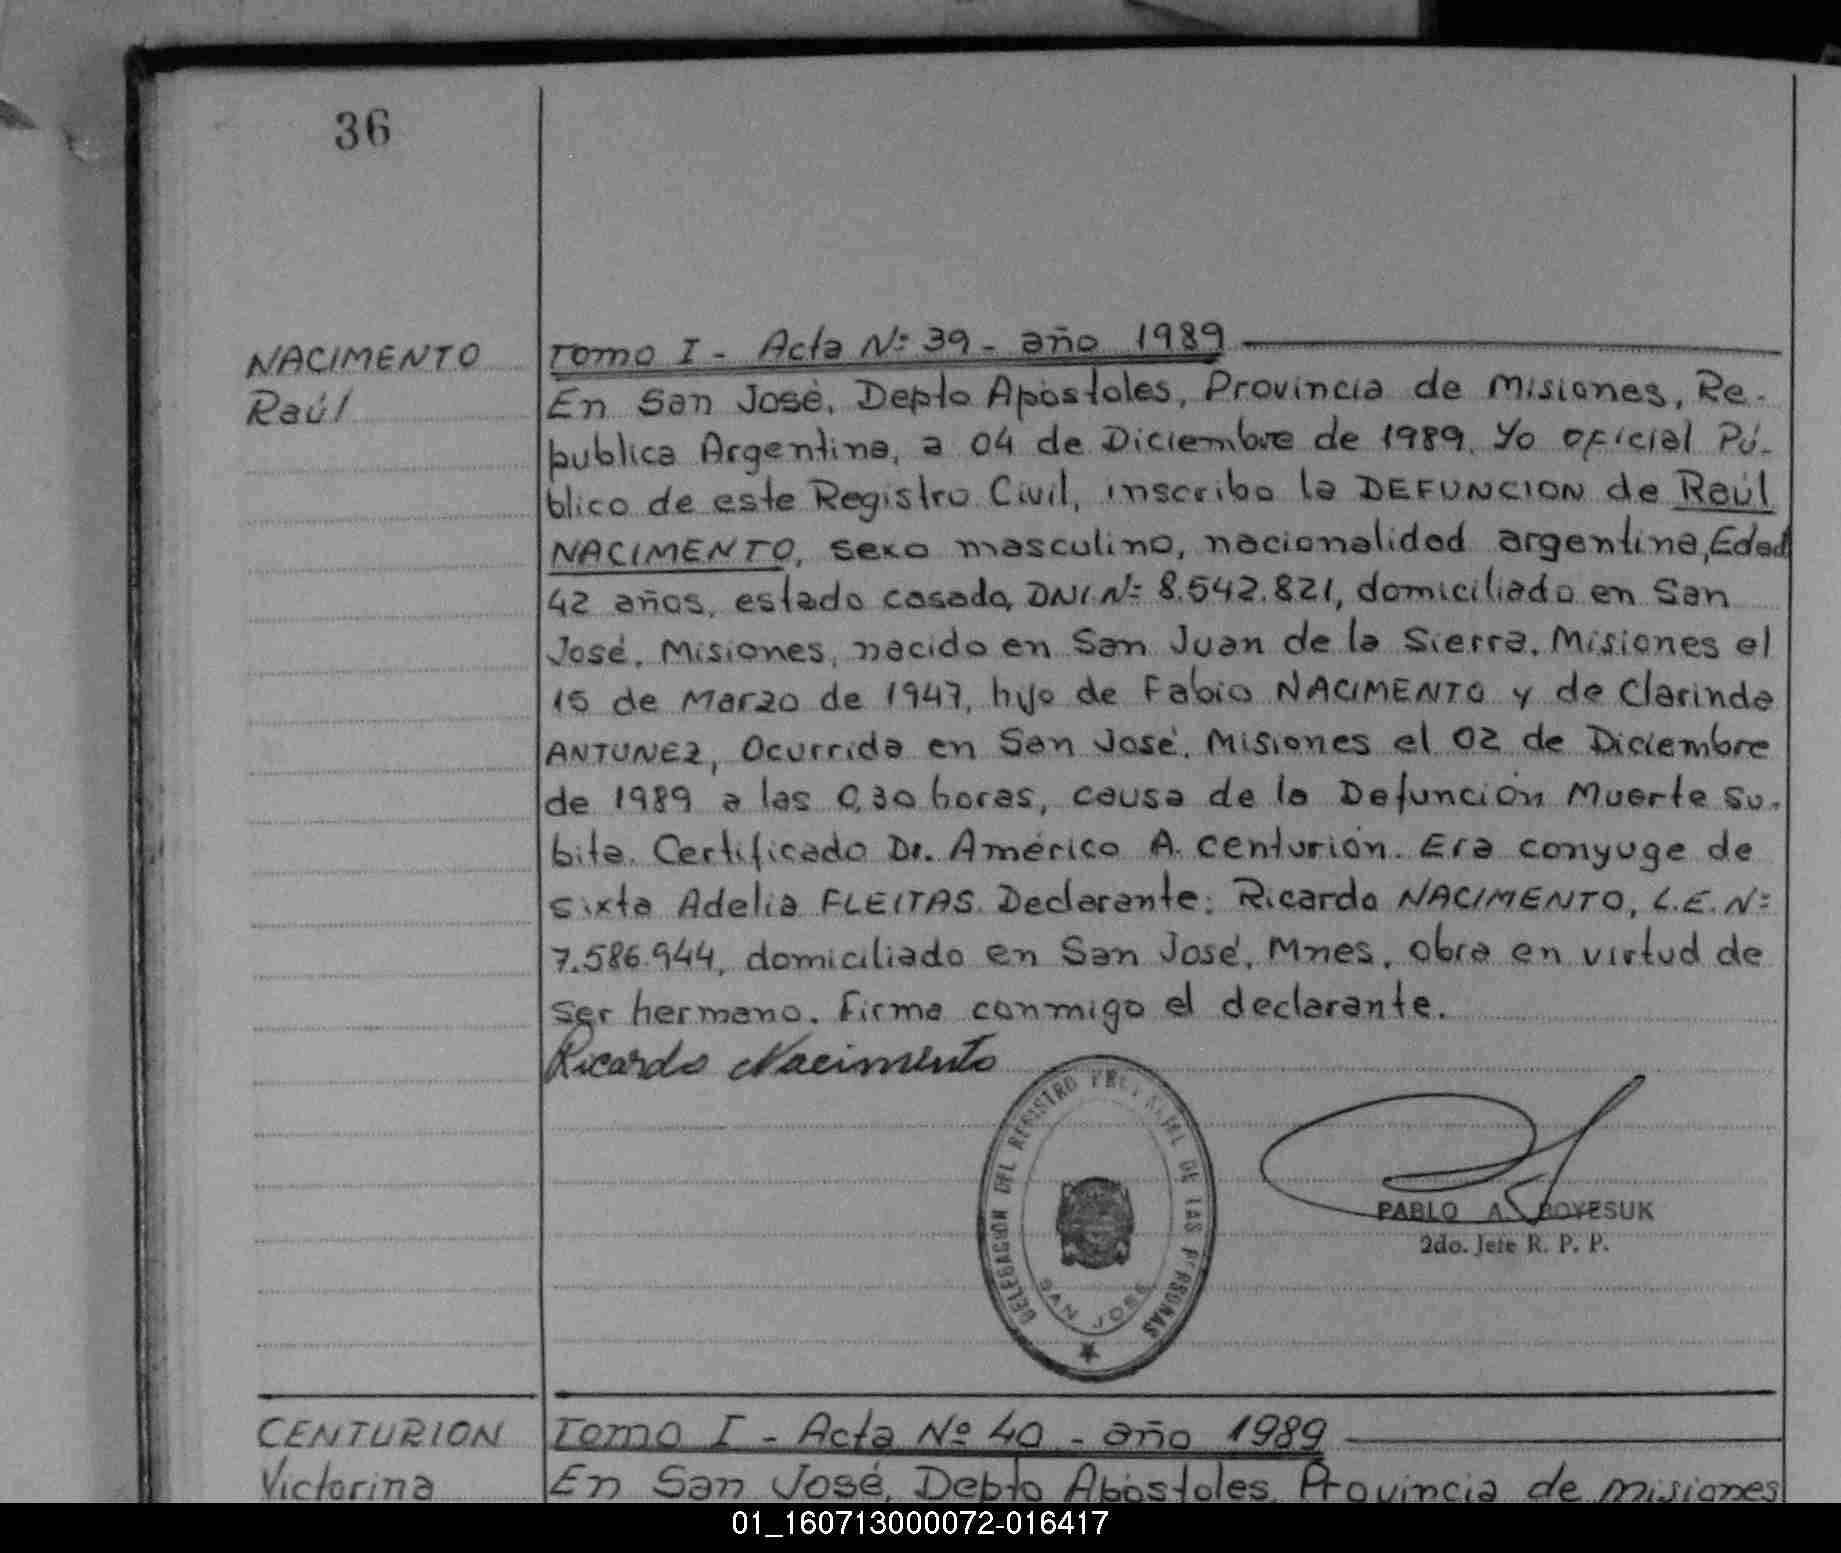 36
NACIMENTO
Raúl
Tomo I - Acta Nº 39 - año 1989
En San José, Depto Apóstoles, Provincia de Misiones, Re-
publica Argentina, a 04 de Diciembre de 1989. Yo oficial Pú-
blico de este Registro Civil, inscribo la DEFUNCION de Raúl
NACIMENTO, sexo masculino, nacionalidad argentina, Edad
42 años, estado casado, DNI Nº 8.542.821, domiciliado en San
José, Misiones, nacido en San Juan de la Sierra, Misiones el
15 de Marzo de 1947, hijo de Fabio NACIMENTO y de Clarinda
ANTUNEZ, Ocurrida en San José, Misiones el 02 de Diciembre
de 1989 a las 0,30 horas, causa de la Defunción Muerte Su-
bita. Certificado Dr. Américo A. Centurión. Era conyuge de
Sixta Adelia FLEITAS. Declarante: Ricardo NACIMENTO, L.E. Nº
7.586.944, domiciliado en San José, Mnes, obra en virtud de
ser hermano. Firma conmigo el declarante.
Ricardo Nacimento
DELEGACION DEL REGISTRO PROVINCIAL DE LAS PERSONAS
SAN JOSE
PABLO A. BOYESUK
2do. Jefe R. P. P.
CENTURION
Victorina
Tomo I - Acta Nº 40 - año 1989
En San José, Depto Apóstoles, Provincia de Misiones
01_160713000072-016417